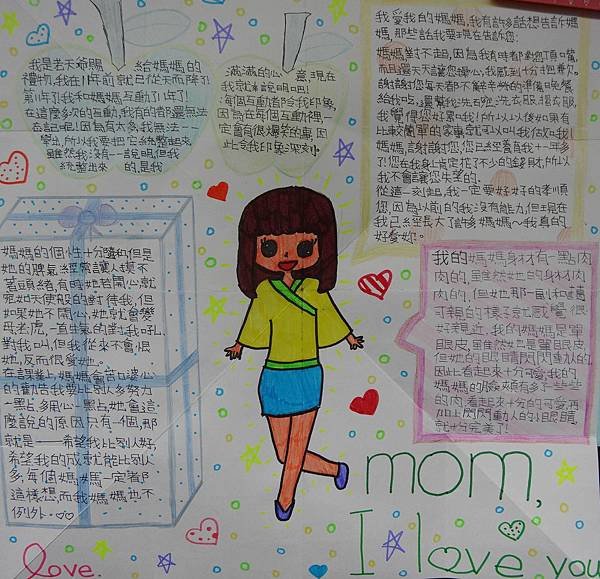 我是老天爺賜給媽媽的
禮物,我在11年前就已從天而降了!
第11年了!我和媽媽互動了11年了!
在這麼多次的互動,我有的都還無法
忘記呢!因為有太多,我無法一一
寫出,所以我要把它統整起來,
雖然我沒有一一說明,但我
統整出來的,是我
滿滿的心意,現在
我就來說明吧!
每個互動都令我印象,
因為在每個互動裡一
定會有很爆笑的事,因
此令我印象深刻。
我愛我的媽媽,我有許多話想告訴媽
媽,那些話我要現在告訴您:
媽媽對不起,因為我有時都對您頂嘴,
而且還天天讓您操心,我感到十分抱歉。
謝謝您每天都不辭辛勞的準備晚餐
給我吃,還幫我洗衣服、摺衣服,
我覺得您好累哦!所以以後如果有
比較簡單的家事就可以叫我做哦!
媽媽,謝謝您,您已經養我十一年多
了!您在我身上肯定花了不少的錢財,所以
我不會讓您失望的。
從這一刻起,我一定要好好的孝順
您,因為以前的我沒有能力,但現在
我已經長大了許多媽媽~我真的
好愛您。
媽媽的個性十分隨和,但是
她的脾氣經常讓人摸不
著頭緒,有時她若開心就
宛如天使般的對待我,但
如果她不開心,她就會變
母老虎,一直生氣的對我吼、
對我叫,但我從來不會恨
她,反而很愛她。
在課業上,媽媽會苦口婆心
的勸告我要比別人多努力
一點、多用心一點,她會這
麼說的原因只有一個,那
就是——希望我比別人好,
希望我的成就能比別人
多,每個媽媽一定都
這樣想,而我媽媽也不
例外。
我的媽媽身材有一點肉
肉的,雖然她的身材肉
肉的,但她那一副和藹
可親的樣子就感覺很
好親近,我的媽媽是單
眼皮,雖然她是單眼皮,
但她的眼睛閃閃動人的,
因此看起來十分可愛,我的
媽媽的臉頰有多了一些些
的肉,看起來十分的可愛,再
加上閃閃動人的小眼睛,
就十分完美了!
mom,
I love you
Love.